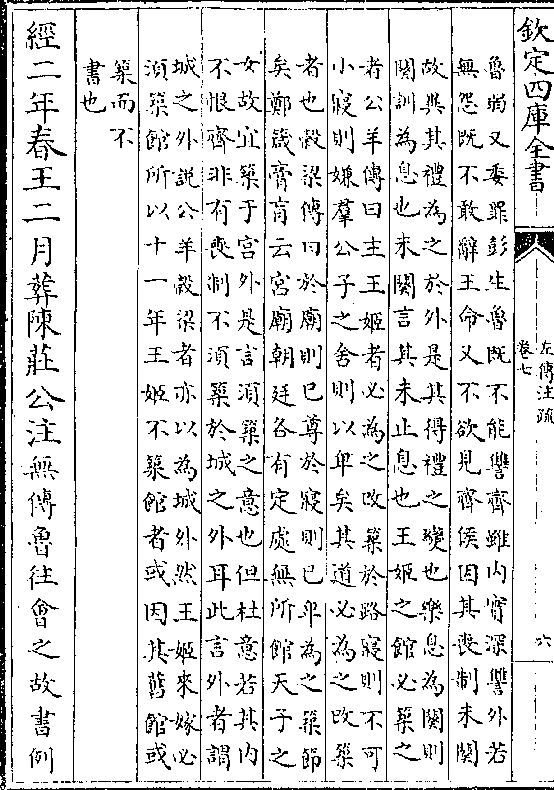 欽定四庫全書
左傳注疏
卷七
六
魯弱又委罪彭生魯既不能讐齊雖内實深讐外若
無怨既不敢辭王命又不欲見齊侯因其喪制未闋
故異其禮為之於外是其得禮之變也樂息為闋則
闋訓為息也未闋言其未止息也王姬之館必築之
者公羊傳曰主王姬者必為之改築於路寢則不可
小寢則嫌羣公子之舍則以卑矣其道必為之改築
者也榖梁傳曰於廟則已尊於寢則已卑為之築節
矣鄭箴膏肓云宮廟朝廷各有定處無所館天子之
女故宜築于宮外是言須築之意也但杜意若其内
不恨齊非有喪制不須築於城之外耳此言外者謂
城之外說公羊榖梁者亦以為城外然王姬來嫁必
須築館所以十一年王姬不築館者或因其舊館或
築而不
書也
經二年春王二月葬陳莊公注無傳魯往會之故書例